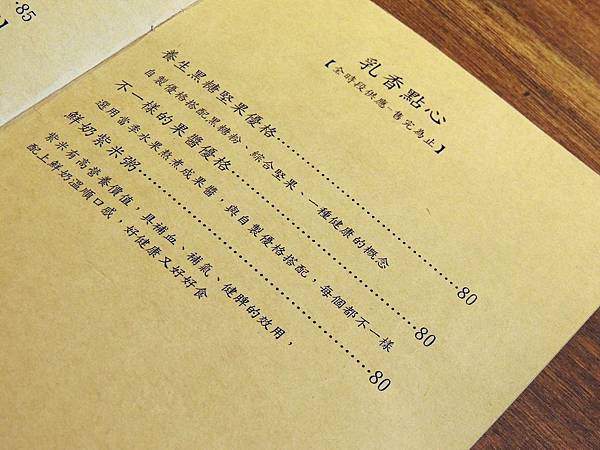 .85
】
乳香點心
【全時段供應–售完為止】
養生黑糖堅果優格 80
自製優格搭配黑糖粉、綜合堅果、一種健康的概念
不一樣的果醬優格 80
選用當季水果熬煮成果醬，與自製優格搭配，每個都不一樣
鮮奶紫米粥 80
紫米有高營養價值，具補血、補氣、健脾的效用，
配上鮮奶溫順口感，好健康又好好食